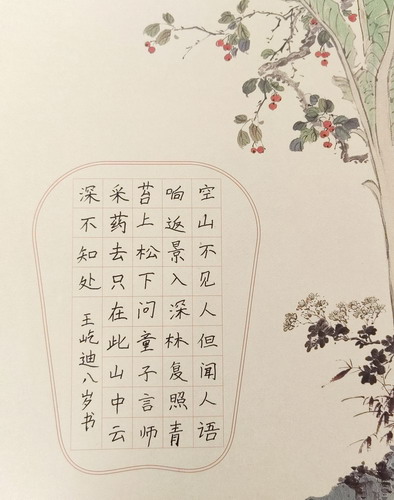 空山不见人但闻人语
响返景入深林复照青
苔上松下问童子言师
采药去只在此山中云
深不知处
王屹迪八岁书